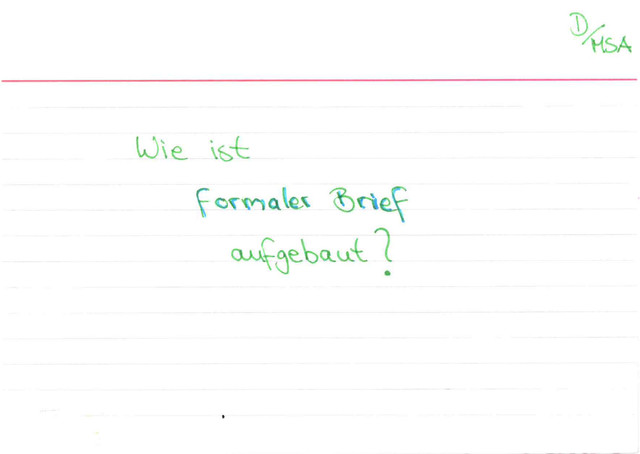 D/MSA
Wie ist
formaler Brief
aufgebaut?